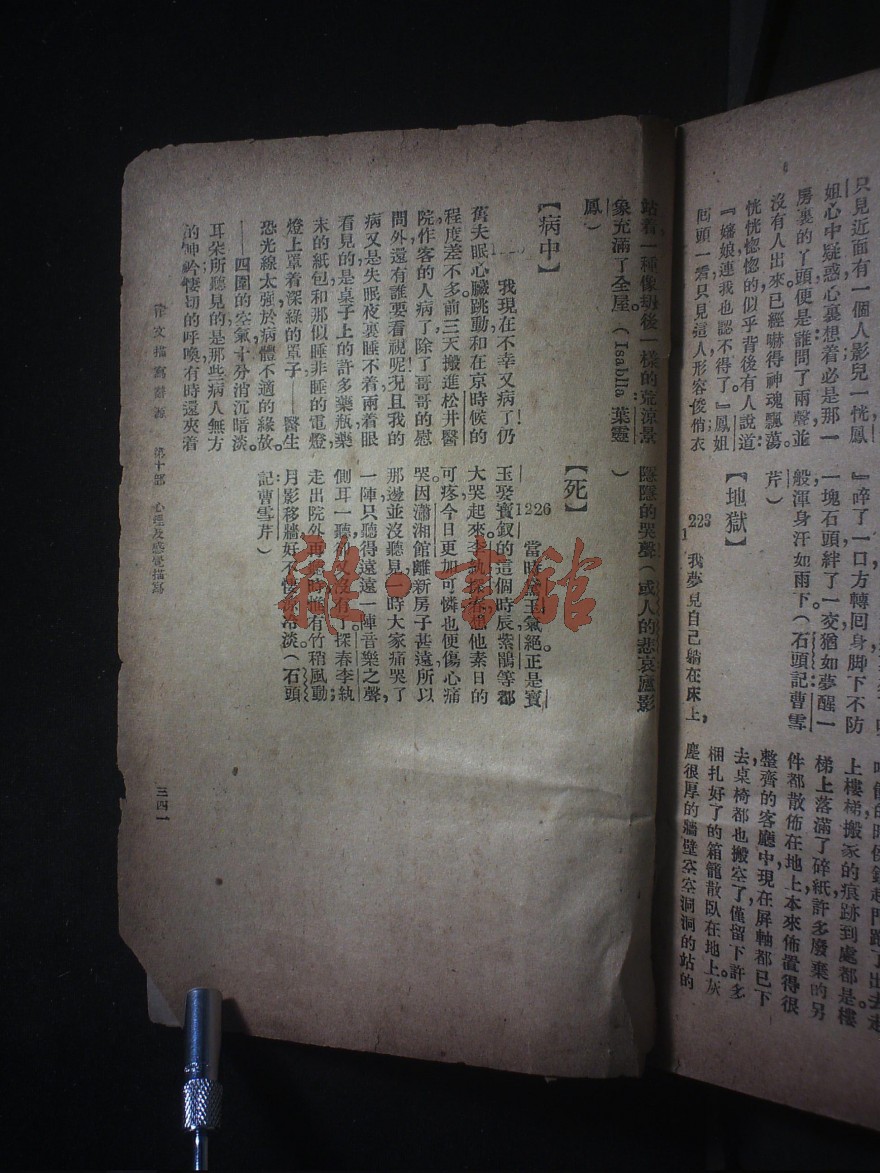 只見近面有一個人影兒一恍鳳
姐心中疑惑心裏想着必是那一
房裏的丫頭便是誰問了兩聲並
沒有人出來已經嚇得神魂飄蕩
恍恍惚惚的似乎背後有人說道
『嬸娘連我也認不得了。』鳳姐
囘頭一看只見這人形容俊俏衣
『啐了一口方轉囘身脚下不防
一塊石頭絆了一交猶如夢醒一
般渾身汗如雨下。(石頭記曹雪
芹)
【地獄】
223
我夢見自己躺在床上,
上樓梯搬家的痕跡到處都是樓
梯上落滿了碎紙許多廢棄的另
件都散佈在地上本來佈置得很
整齊的客廳中現在屏軸都已下
去桌椅都也搬空了僅留下許多
梱扎好了的箱籠散臥在地上。灰
塵很厚的牆壁空空洞洞的站的
站着一種像刧後一樣的荒涼景
象充滿了全屋。(Isablla 葉靈
鳳)
【病中】
我現在不幸又病了!仍
舊失眠心臟跳動和在京時候的
程度差不多前三天搬進松井醫
院作客的人病了除了哥哥的慰
問外還有誰要看視呢況且我的
病又是失眠夜裏睡不着兩着眼
看見的是桌子上的許多藥瓶藥
末的紙包和那似睡非睡的電燈,
燈上罩着深綠的罩子——醫生
恐光線太強於病體不適的緣故。
——四圍的空氣十分消沉暗淡
耳朵所聽見的是那些病人無力
的呻吟悽切的呼喚有時還夾着
隱隱的哭聲(或人的悲哀廬影
)
【死】
1226 當時黛玉氣絕正是寶
玉娶寶釵的這個時辰紫鵑等都
大哭起來。李紈探春想他素日的
可疼今日更加可憐也便傷心痛
哭因瀟湘館離新房子甚遠所以
那邊並沒聽見一時大家痛哭了
一陣只聽得遠遠一陣音樂之聲,
側耳一聽却又沒有了探春李紈
走出院外再聽時惟有竹梢風動;
月影移牆好不悽涼冷淡。(石頭
記曹雪芹)
作文描寫辭源 第十部 心理及感覺描寫 三四一
雜·書館